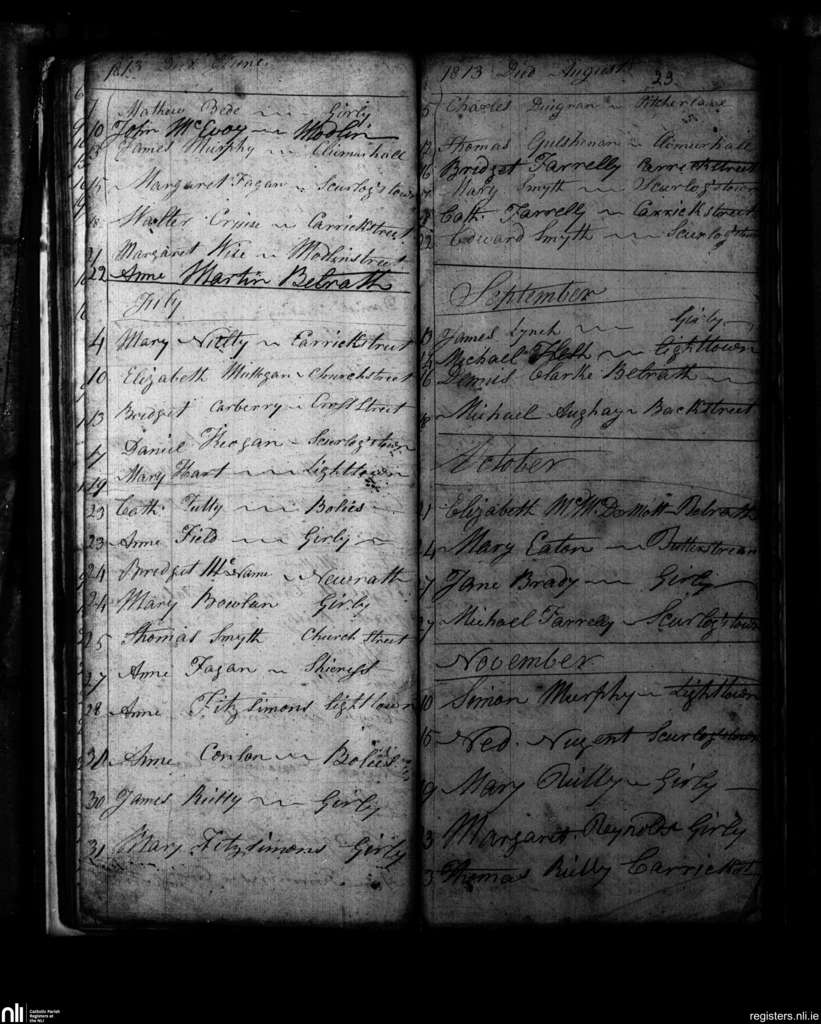 1813 Died June
7 Mathew Bede Girly
10 John McEvoy Modlin
13 James Murphy Climirhall
15 Margaret Fagan Scurlog'stown
18 Walter Cruise Carrickstreet
21 Margaret Wise Modlinstreet
22 Anne Martin Belrath
July
4 Mary Carrickstreet
10 Elizabeth Mulligan Churchstreet
13 Bridget Carberry Cross Street
17 Daniel Keegan Scurlog'stown
19 Mary Hart Lighttown
23 Cath. Tully Bolies
23 Anne Field Girly
24 Bridget Mc Name Newrath
24 Mary Bowlan Girly
25 Thomas Smyth Church Street
27 Anne Fagan
28 Anne Fitzsimons Lighttown
Anne Conlon Bolies
30 James Reilly Girly
31 Mary Fitzsimons Girly
1813 Died August 23
5 Charles Duignan Pitcherlane
Thomas Climirhall
16 Bridget Farrelly Carrickstreet
Mary Smyth Scurlog'stown
Cath. Farrelly Carrickstreet
22 Edward Smyth Scurlog'stown
September
James Lynch Girly
Michael Lighttown
16 Dennis Clarke Belrath
Michael Aughay Backstreet
October
Elizabeth Belrath
4 Mary Eaton
7 Jane Brady Girly
Michael Farrelly Scurlog'stown
November
10 Simon Murphy Lighttown
15 Ned. Nugent Scurlog'stown
9 Mary Reilly Girly
3 Margaret Reynolds Girly
3 Thomas Reilly Carrickst
nli
Catholic Parish
Registers at
the NLI
registers.nli.ie